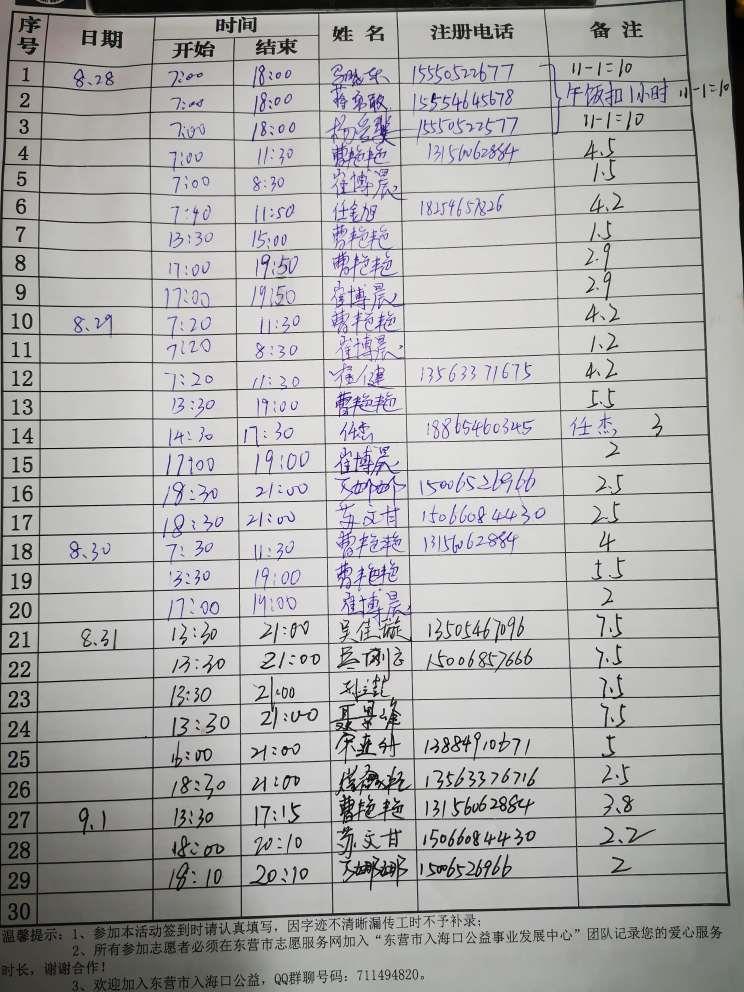 序号 日期 时间 姓名 注册电话 备注
开始 结束
1 8.28 7:00 18:00 15550522677 11-1=10
2 7:00 18:00 15554645678 午饭扣1小时 11-1=10
3 7:00 18:00 15550522577 11-1=10
4 7:00 11:30 曹艳艳 13156062884 4.5
5 7:00 8:30 崔博晨 1.5
6 7:40 11:50 任金旭 18254657826 4.2
7 13:30 15:00 曹艳艳 1.5
8 17:00 19:50 曹艳艳 2.9
9 17:00 19:50 崔博晨 2.9
10 8.29 7:20 11:30 曹艳艳 4.2
11 7:20 8:30 崔博晨 1.2
12 7:20 11:30 崔健 13563371675 4.2
13 13:30 19:00 曹艳艳 5.5
14 14:30 17:30 任杰 18865460345 任杰 3
15 17:00 19:00 崔博晨 2
16 18:30 21:00 15006526966 2.5
17 18:30 21:00 苏文甘 15066084430 2.5
18 8.30 7:30 11:30 曹艳艳 13156062884 4
19 13:30 19:00 曹艳艳 5.5
20 17:00 19:00 崔博晨 2
21 8.31 13:30 21:00 吴佳璇 13505467096 7.5
22 13:30 21:00 15006857666 7.5
23 13:30 21:00 7.5
24 13:30 21:00 7.5
25 16:00 21:00 13884910671 5
26 18:30 21:00 13563376716 2.5
27 9.1 13:30 17:15 曹艳艳 13156062884 3.8
28 18:00 20:10 苏文甘 15066084430 2.2
29 18:10 20:10 15006526966 2
30
温馨提示：1、参加本活动签到时请认真填写，因字迹不清晰漏传工时不予补录；
2、所有参加志愿者必须在东营市志愿服务网加入“东营市入海口公益事业发展中心”团队记录您的爱心服务
时长，谢谢合作！
3、欢迎加入东营市入海口公益，QQ群聊号码：711494820。